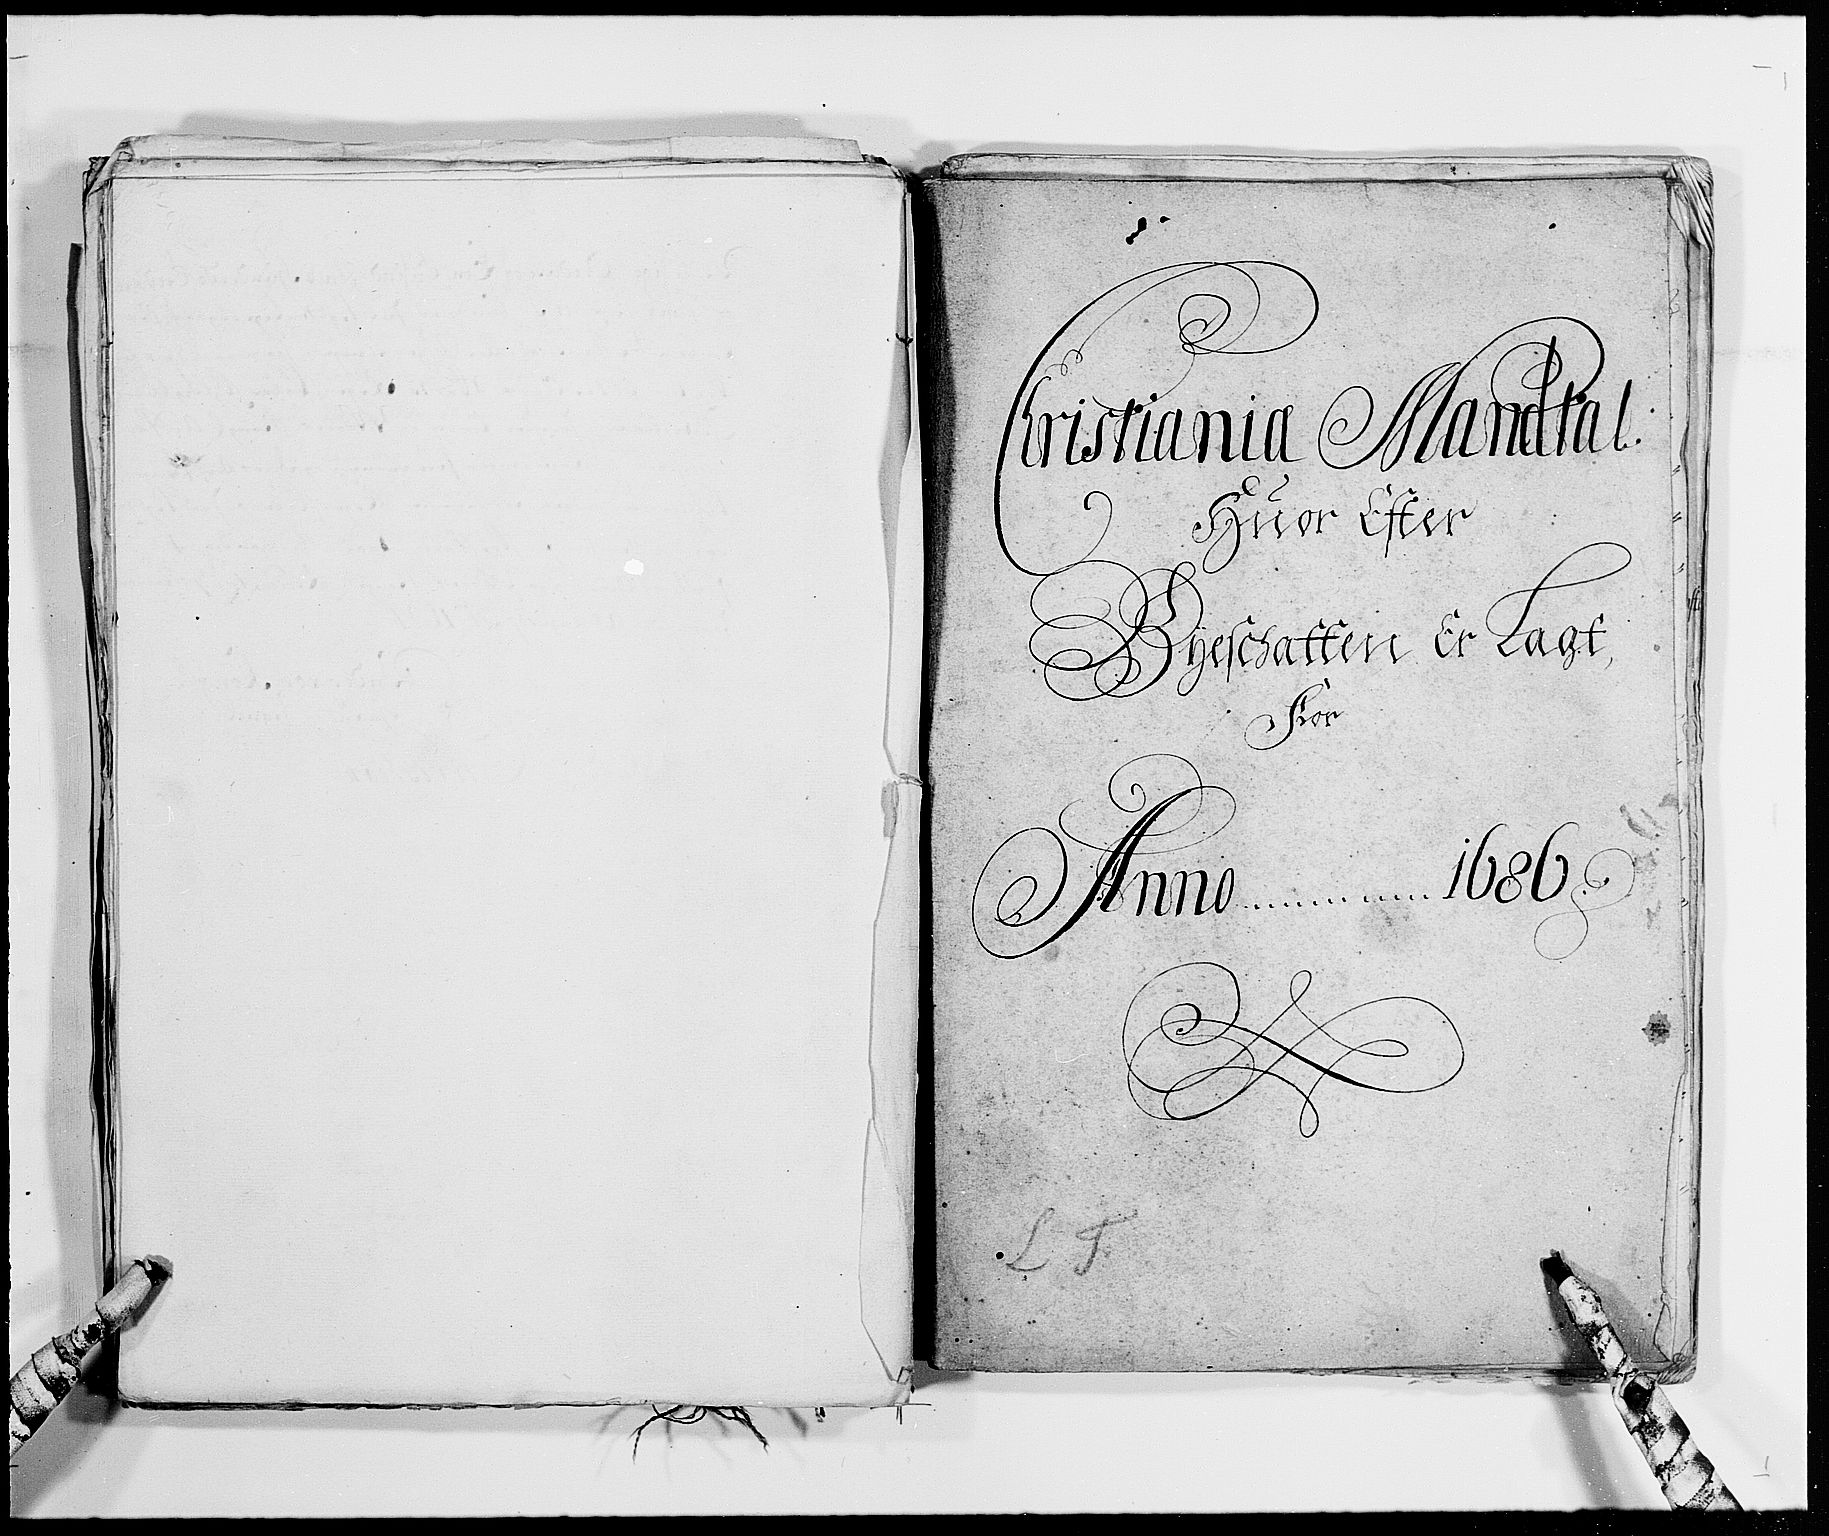 Christiania Mandtal.
Huor Efter
Byeschatten Er Lagt,
For
Anno 1686
L T.